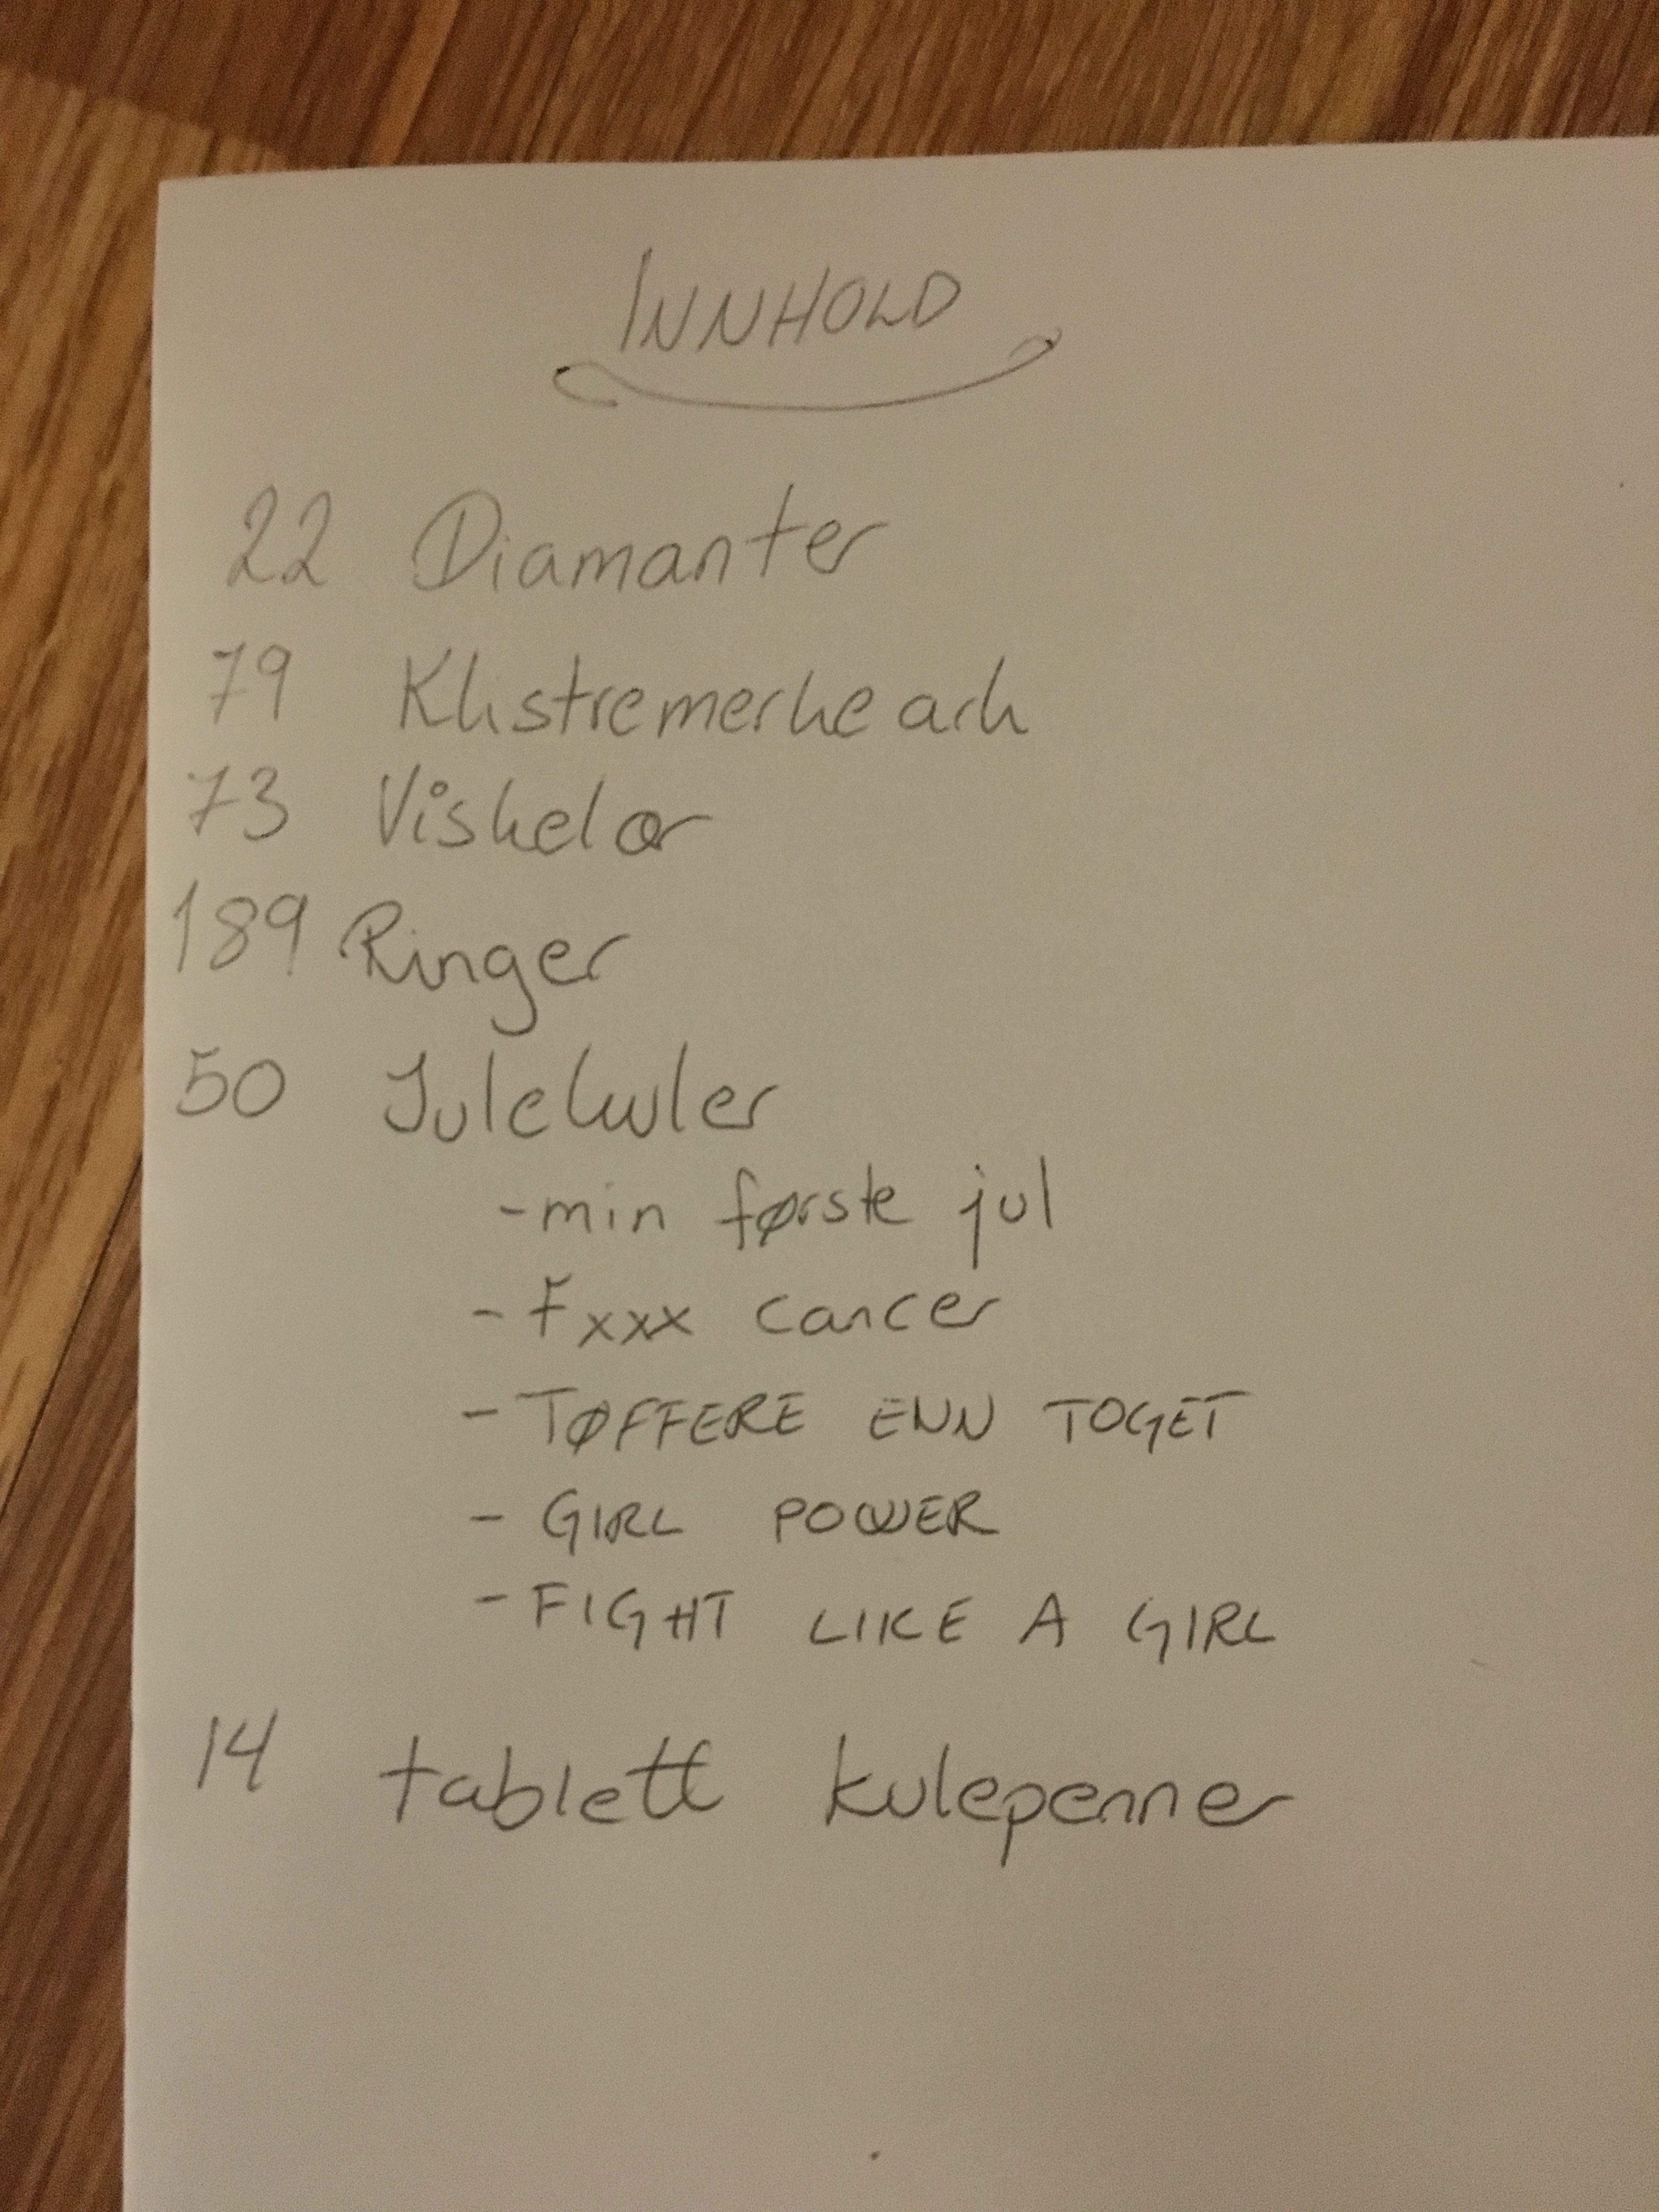 INNHOLD
22 Diamanter
79 Klistremerke ark
73 Viskelær
189 Ringer
50 Julekuler
-min første jul
-Fxxx cancer
-TØFFERE ENN TOGET
-GIRL POWER
-FIGHT LIKE A GIRL
14 tablett kulepenner